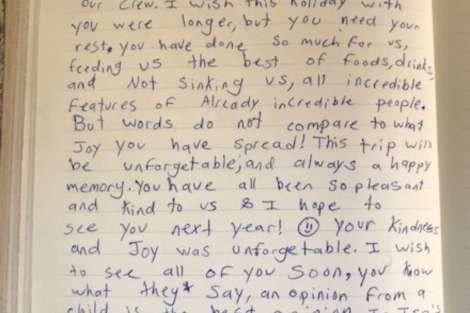 our crew. I wish this holiday with
you were longer, but you need your
rest. you have done so much for us,
feeding us the best of foods, drinks,
and Not Sinking us, all incredible
features of Already incredible people.
But words do not compare to what
Joy you have spread! This trip will
be unforgetable, and always a happy
memory. You have all been so pleasant
and kind to us & I hope to
see you next year! your kindness
and Joy was unforgetable. I wish
to see all of you soon, you know
what they* say, an opinion from a
child is the best opinion